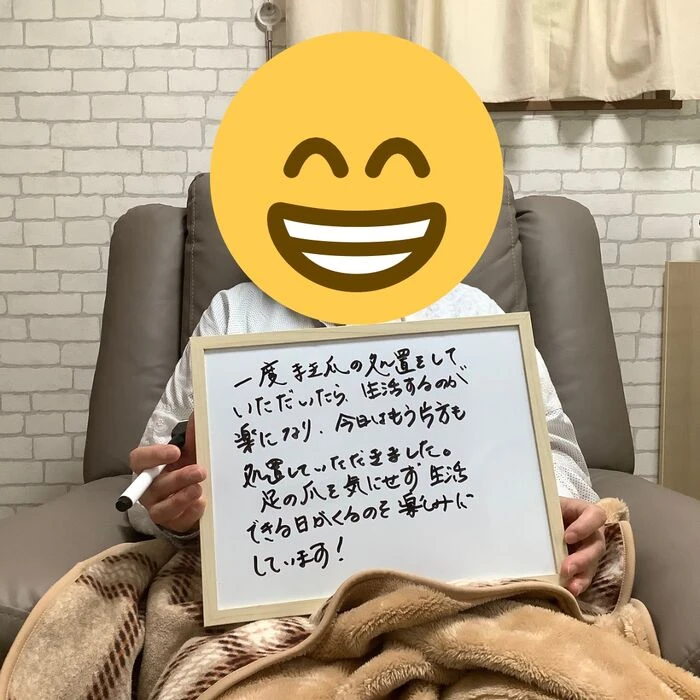 一度巻爪の処置をして
いただいたら、生活するのが
楽になり、今日はもう片方も
処置していただきました。
足の爪を気にせず生活
できる日がくるのを楽しみに
しています!